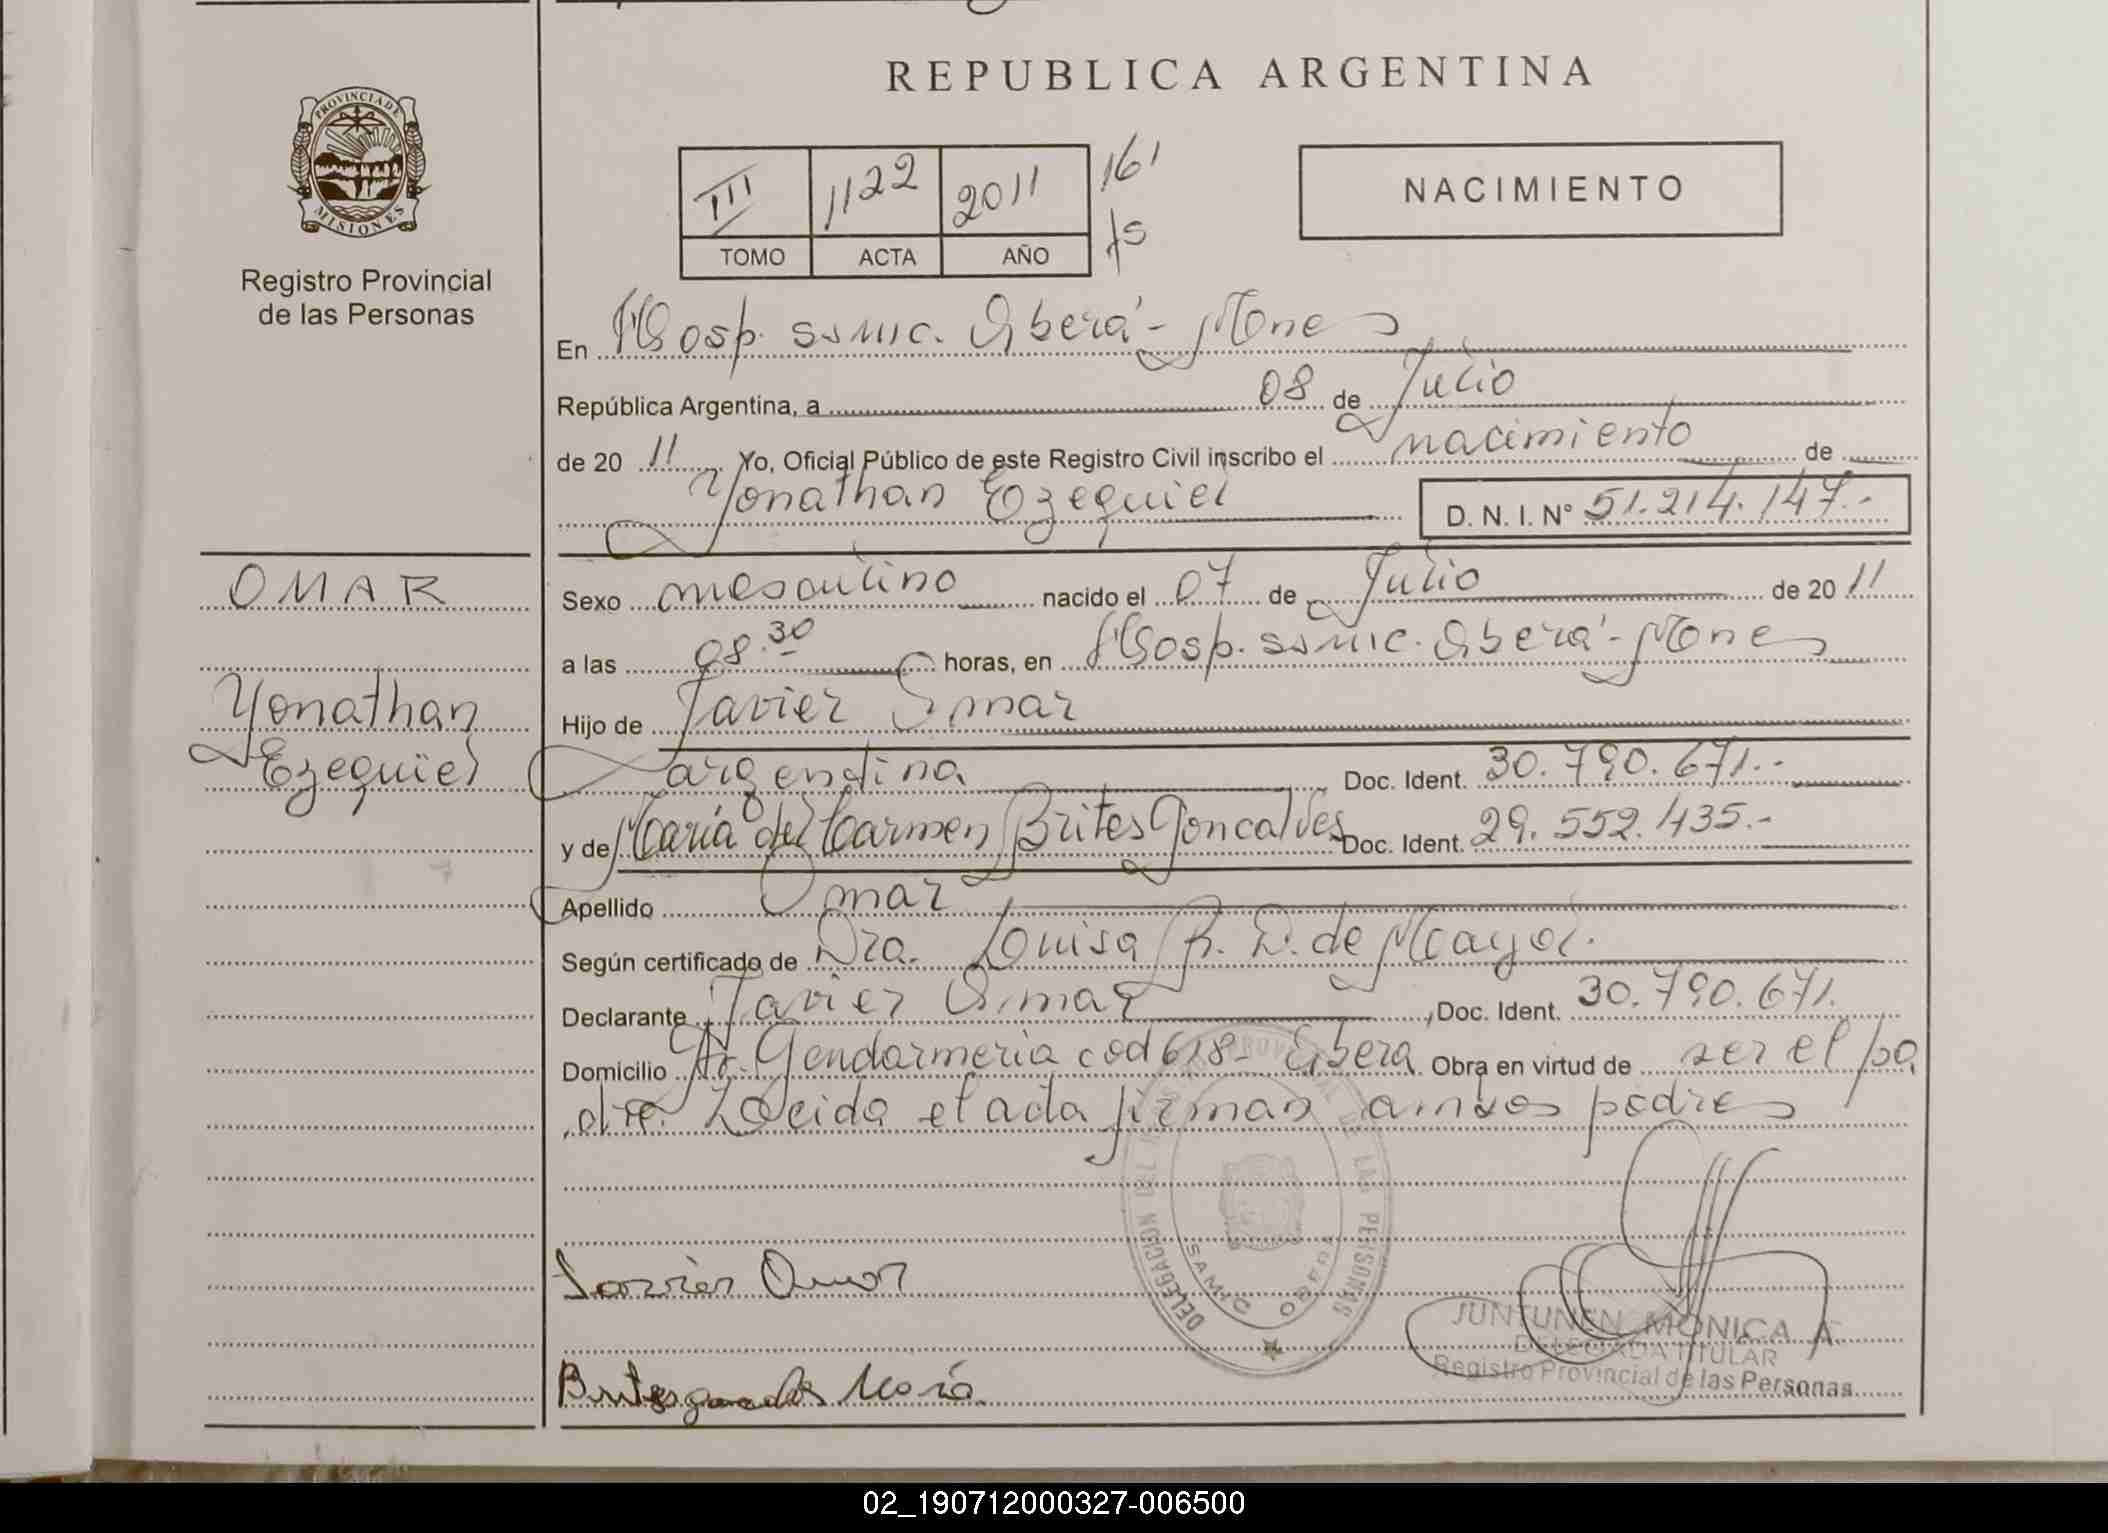 REPUBLICA ARGENTINA
PROVINCIA DE
MISIONES
Registro Provincial
de las Personas
III 1122 2011 161
TOMO ACTA AÑO fs
NACIMIENTO
En Hosp. SSMIC. Oberá - Mones
República Argentina, a 08 de Julio
de 20 11 Yo, Oficial Público de este Registro Civil inscribo el nacimiento de
Yonathan Ezequiel D. N. I. N° 51.214.147.-
OMAR
Yonathan
Ezequiel
Sexo masculino nacido el 07 de Julio de 20 11
a las 08.30 horas, en Hosp. SSMIC. Oberá - Mones
Hijo de Javier Omar
argentina Doc. Ident. 30.790.671.-
y de María del Carmen Brites Goncalves Doc. Ident. 29.552.435.-
Apellido Omar
Según certificado de Dra. Louisa R. D. de Mayol.
Declarante Javier Omar, Doc. Ident. 30.790.671.
Domicilio Av. Gendarmeria cod 618- Obera Obra en virtud de ser el pa
dre. Leeida el acta firman ambos padres
DELEGACION REGISTRO PROVINCIAL DE LAS PERSONAS
SAMIC OBERA
Javier Omar
JUNTUNEN MONICA A
DELEGADA TITULAR
Registro Provincial de las Personas
Brites goncalves María
02_190712000327-006500